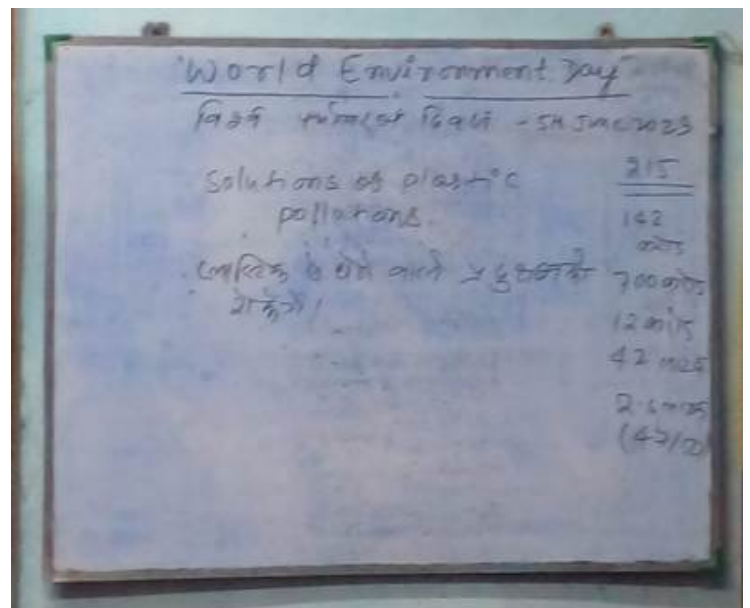 "World Environment Day"
विश्व पर्यावरण दिवस - 5th June 2023
Solutions of plastic
pollutions.
प्लास्टिक से होने वाले प्रदुषण को
रोकेंगे।
215
142
करोड़
700 करोड़
12 करोड़
42
(42/